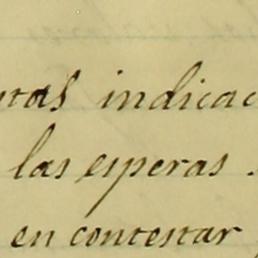 ntas indicac
las esperas.
en contestar,